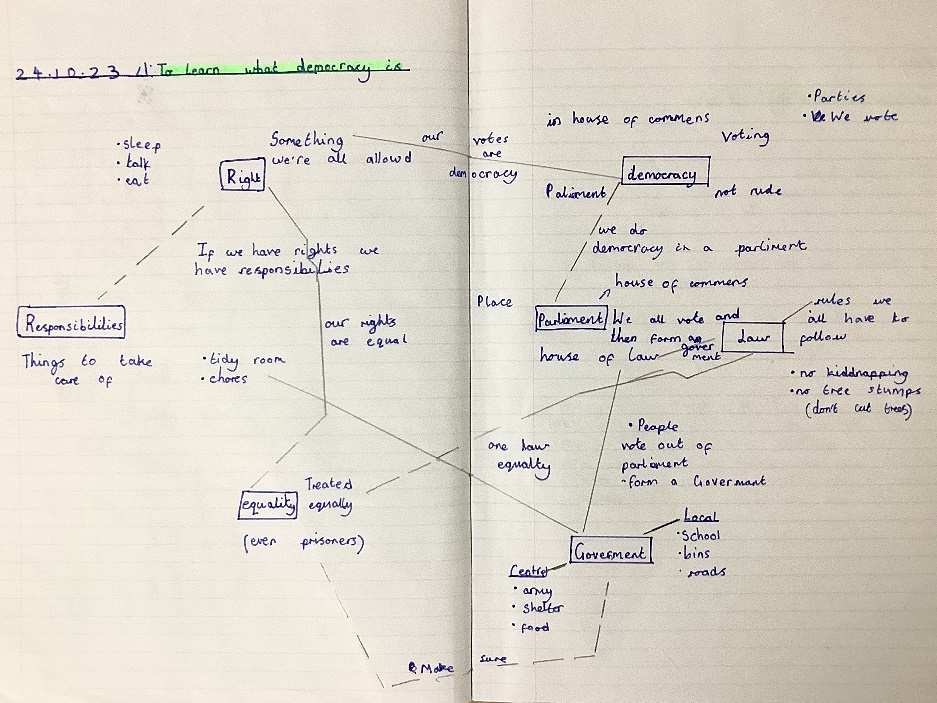 24.10.23 LI: To Learn what democracy is
• sleep
• talk
• eat
Right
Something
we're all allowd
our votes
are
democracy
in house of commens
Voting
• Parties
• We vote
democracy
Paliament
not rude
we do
democracy in a parliment
If we have rights we
have responsibilies
Responsibilities
Things to take
care of
• tidy room
• chores
our rights
are equal
Place
house of commens
Parliament
We all vote and
then form a
goverment
house of law
Law
rules we
all have to
follow
• no kiddnapping
• no tree stumps
(don't cut trees)
one law
equalty
• People
vote out of
parliament
• form a Goverment
equality
Treated
equally
(even prisoners)
Goverment
Local
• School
• bins
• roads
Central
• army
• Shelter
• food
Make sure